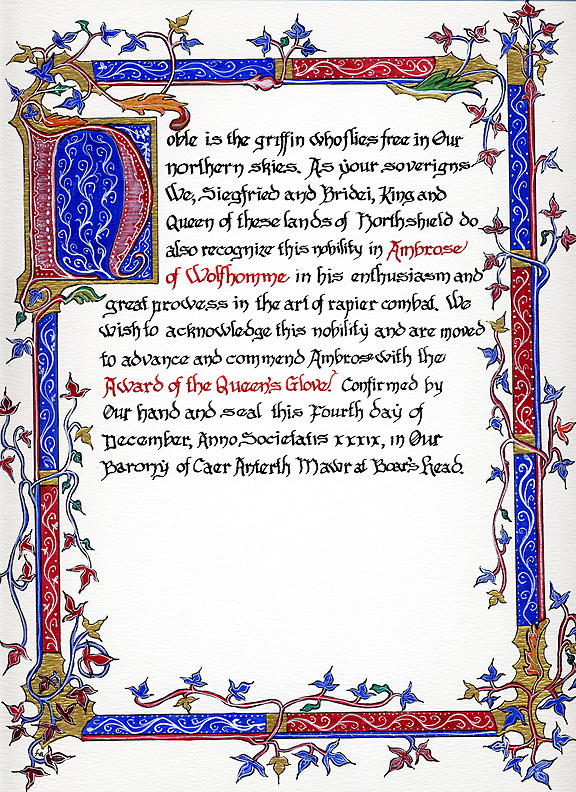 Noble is the griffin who flies free in Our
northern skies. As your soverigns
We, Siegfried and Bridei, King and
Queen of these lands of Northshield do
also recognize this nobility in Ambrose
of Wolfhomme in his enthusiasm and
great prowess in the art of rapier combat. We
wish to acknowledge this nobility and are moved
to advance and commend Ambrose with the
Award of the Queen's Glove! Confirmed by
Our hand and seal this Fourth day of
December, Anno Societatis xxxix, in Our
Barony of Caer Anterth Mawr at Boar's Head.